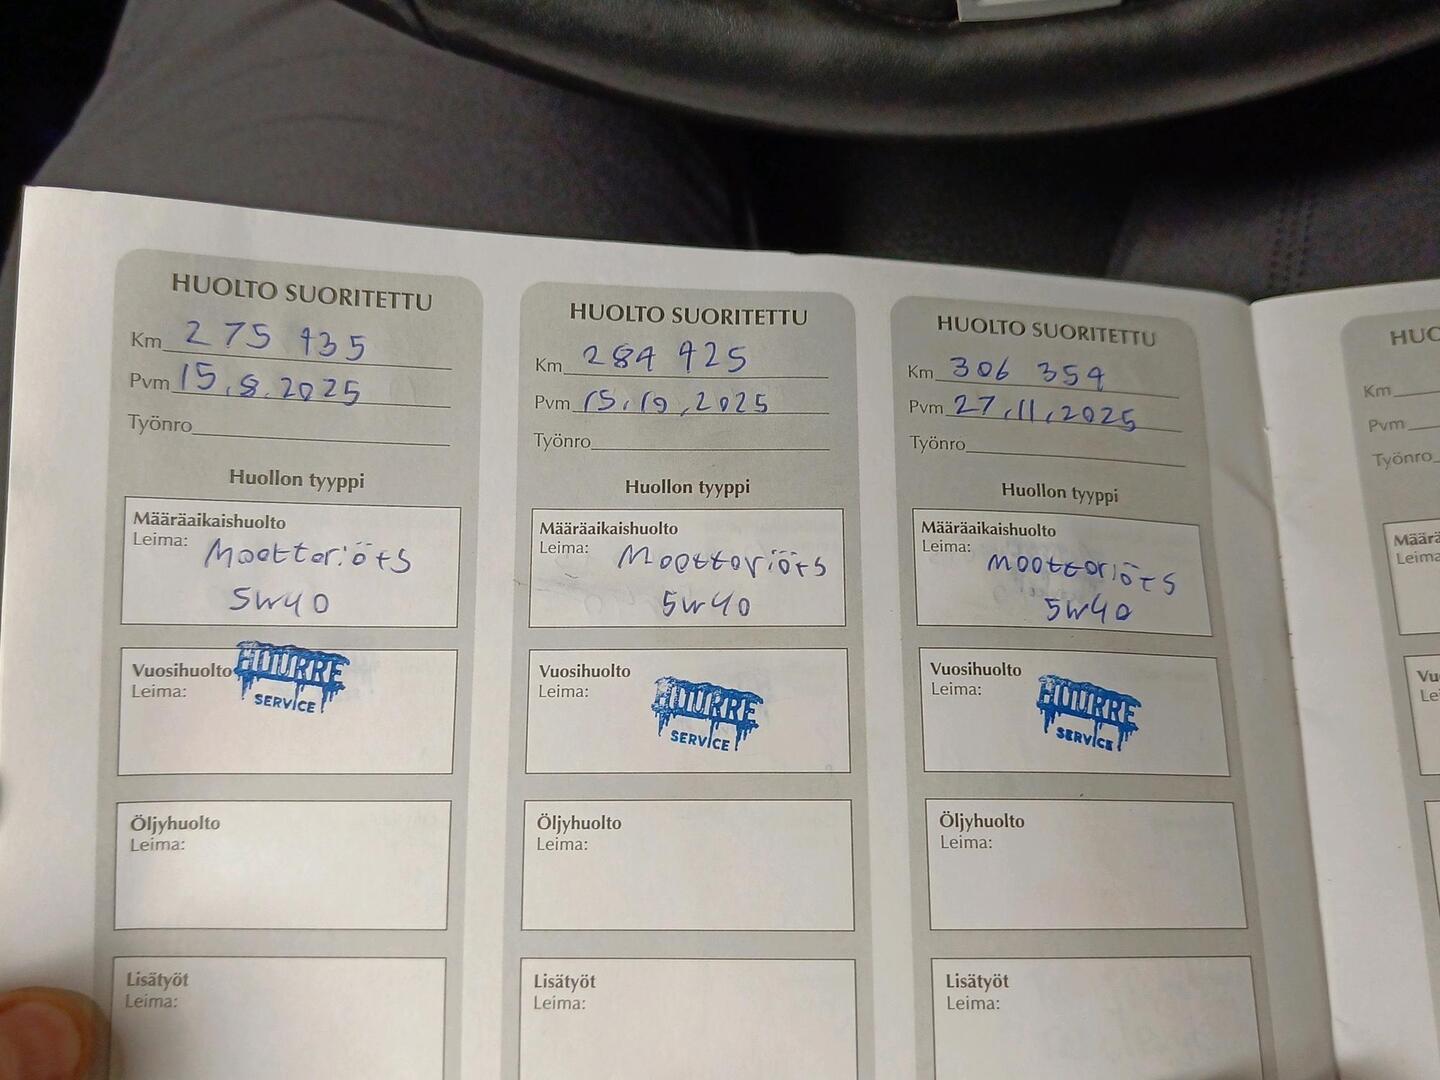 HUOLTO SUORITETTU
Km 275 435
Pvm 15.8.2025
Työnro
Huollon tyyppi
Määräaikaishuolto
Leima: Moottoriöts
5W40
Vuosihuolto
Leima:
HUURRE
SERVICE
Öljyhuolto
Leima:
Lisätyöt
Leima:
HUOLTO SUORITETTU
Km 284 925
Pvm 15.10.2025
Työnro
Huollon tyyppi
Määräaikaishuolto
Leima: Moottoriöts
5W40
Vuosihuolto
Leima:
HUURRE
SERVICE
Öljyhuolto
Leima:
Lisätyöt
Leima:
HUOLTO SUORITETTU
Km 306 354
Pvm 27.11.2025
Työnro
Huollon tyyppi
Määräaikaishuolto
Leima: moottoriöts
5W40
Vuosihuolto
Leima:
HUURRE
SERVICE
Öljyhuolto
Leima:
Lisätyöt
Leima:
HUO
Km
Pvm
Työnro
Määrä
Leima
Vu
Le